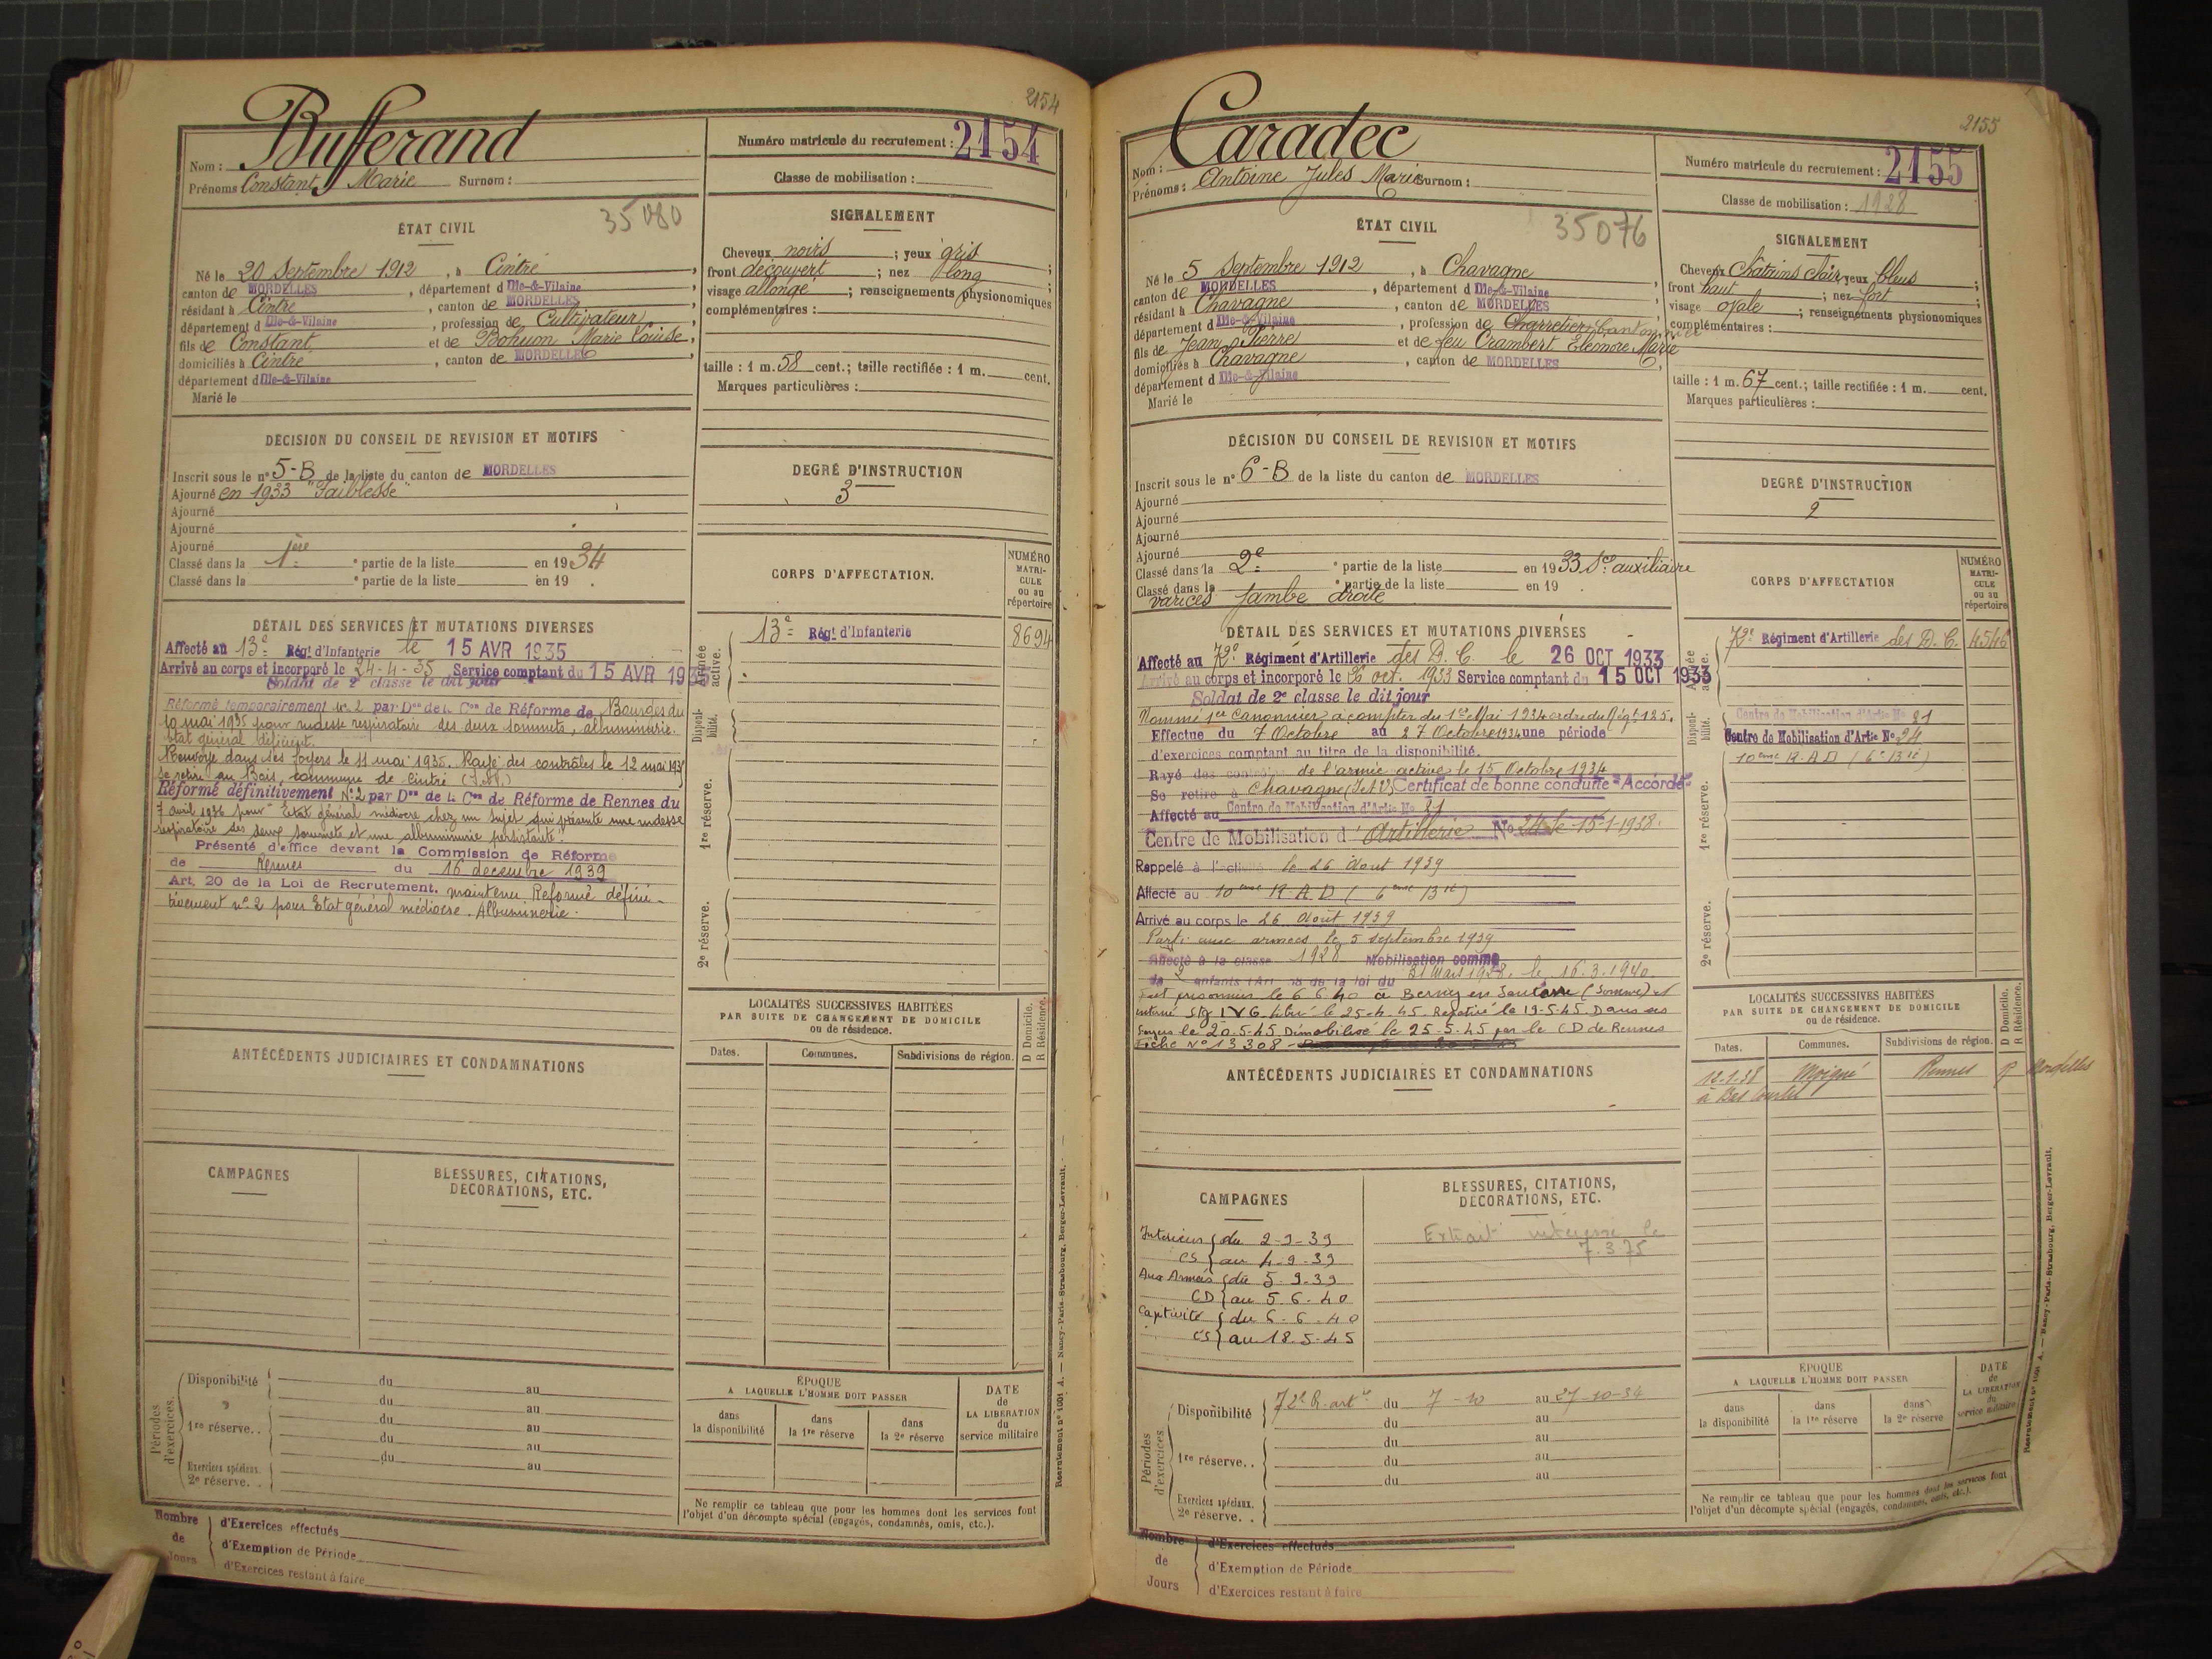 2154
Bufferand
Nom :
Prénoms Constant Marie Surnom :
Numéro matricule du recrutement : 2154
Classe de mobilisation :
ÉTAT CIVIL
35080
Né le 20 Septembre 1912, à Cintré,
canton de MORDELLES, département d Ille-&-Vilaine,
résidant à Cintré, canton de MORDELLES,
département d Ille-&-Vilaine, profession de Cultivateur,
fils de Constant et de Bohuon Marie Louise,
domiciliés à Cintré, canton de MORDELLES
département d Ille-&-Vilaine
Marié le
SIGNALEMENT
Cheveux noirs ; yeux gris ;
front découvert ; nez long ;
visage allongé ; renseignements physionomiques
complémentaires :
taille : 1 m. 58 cent.; taille rectifiée : 1 m. cent.
Marques particulières :
DÉCISION DU CONSEIL DE REVISION ET MOTIFS
Inscrit sous le n° 5-B de la liste du canton de MORDELLES
Ajourné en 1933 "Faiblesse"
Ajourné
Ajourné
Ajourné
Classé dans la 1ère partie de la liste en 1934
Classé dans la partie de la liste en 19 .
DEGRÉ D'INSTRUCTION
3
CORPS D'AFFECTATION.
NUMÉRO MATRI-CULE ou au répertoire
Armée active.
13e Régt d'Infanterie 8694
Disponi-bilité.
1re réserve.
2e réserve.
DÉTAIL DES SERVICES ET MUTATIONS DIVERSES
Affecté au 13e Régt d'Infanterie le 15 AVR 1935
Arrivé au corps et incorporé le 24-4-35 Service comptant du 15 AVR 1935
Soldat de 2e classe le dit jour
Réformé temporairement N° 2 par Don de la Con de Réforme de Bourges du
10 mai 1935 pour rudesse respiratoire des deux sommets, albuminurie.
Etat général déficient.
Renvoyé dans ses foyers le 11 mai 1935. Rayé des contrôles le 12 mai 1935
Se retire au Bois, commune de Cintré (I.&V.)
Réformé définitivement N° 2 par Don de la Con de Réforme de Rennes du
7 avril 1936 pour "Etat général médiocre chez un sujet qui présente une rudesse
respiratoire des deux sommets et une albuminurie persistante".
Présenté d'office devant la Commission de Réforme
de Rennes du 16 decembre 1939
Art. 20 de la Loi de Recrutement. maintenu Reformé défini-
tivement n° 2 pour Etat général médiocre. Albuminerie.
ANTÉCÉDENTS JUDICIAIRES ET CONDAMNATIONS
LOCALITÉS SUCCESSIVES HABITÉES
PAR SUITE DE CHANGEMENT DE DOMICILE
ou de résidence.
D Domicile.
R Résidence.
Dates. Communes. Subdivisions de région.
CAMPAGNES
BLESSURES, CITATIONS,
DÉCORATIONS, ETC.
Périodes d'exercices.
Disponibilité du au
du au
1re réserve. . du au
du au
du au
Exercices spéciaux.
2e réserve. .
ÉPOQUE
A LAQUELLE L'HOMME DOIT PASSER
dans la disponibilité
dans la 1re réserve
dans la 2e réserve
DATE de LA LIBÉRATION du service militaire
Ne remplir ce tableau que pour les hommes dont les services font
l'objet d'un décompte spécial (engagés, condamnés, omis, etc.).
Nombre de Jours
d'Exercices effectués
d'Exemption de Période
d'Exercices restant à faire
Recrutement n° 1001 A. — Nancy-Paris-Strasbourg, Berger-Levrault.
2155
Caradec
Nom :
Prénoms : Antoine Jules Marie Surnom :
Numéro matricule du recrutement : 2155
Classe de mobilisation : 1928
ÉTAT CIVIL
35076
Né le 5 Septembre 1912, à Chavagne
canton de MORDELLES, département d Ille-&-Vilaine
résidant à Chavagne, canton de MORDELLES,
département d Ille-&-Vilaine, profession de Charretier Cantonnier
fils de Jean Pierre et de feu Crambert Eléonore Marie
domiciliés à Chavagne, canton de MORDELLES
département d Ille-&-Vilaine
Marié le
SIGNALEMENT
Cheveux Châtains clair yeux bleus ;
front haut ; nez fort ;
visage ovale ; renseignements physionomiques
complémentaires :
taille : 1 m. 67 cent.; taille rectifiée : 1 m. cent.
Marques particulières :
DÉCISION DU CONSEIL DE REVISION ET MOTIFS
Inscrit sous le n° 6-B de la liste du canton de MORDELLES
Ajourné
Ajourné
Ajourné
Ajourné
Classé dans la 2e partie de la liste en 1933 Sce auxiliaire
Classé dans la partie de la liste en 19 .
varices jambe droite
DEGRÉ D'INSTRUCTION
2
CORPS D'AFFECTATION
NUMÉRO MATRI-CULE ou au répertoire
Armée active.
72e Régiment d'Artillerie des D.C. 4546
Disponi-bilité.
Centre de Mobilisation d'Artie No 21
Centre de Mobilisation d'Artie No 24
10eme R.A.D (6e Bie)
1re réserve.
2e réserve.
DÉTAIL DES SERVICES ET MUTATIONS DIVERSES
Affecté au 72e Régiment d'Artillerie des D.C. le 26 OCT 1933
Arrivé au corps et incorporé le 26 oct. 1933 Service comptant du 15 OCT 1933
Soldat de 2e classe le dit jour
Nommé 1er Canonnier à compter du 1er Mai 1934 ordre du Régt 125.
Effectue du 7 Octobre au 27 Octobre 1934 une période
d'exercices comptant au titre de la disponibilité.
Rayé des contrôles de l'armée active le 15 Octobre 1934
Se retire à Chavagne (I&V) Certificat de bonne conduite "Accordé"
Affecté au Centre de Mobilisation d'Artie No 21
Centre de Mobilisation d'Artillerie No 24 le 15-1-1938.
Rappelé à l'activité le 26 Aout 1939
Affecté au 10eme R.A.D (6eme Bie)
Arrivé au corps le 26 Aout 1939
Parti aux armées le 5 septembre 1939
Affecté à la classe 1928 Mobilisation comme
de 2 enfants (Art. 58 de la loi du 31 Mars 1928. le 16.3.1940.
Fait prisonnier le 6 6 40 à Berny en Santerre (Somme) et
interné Stg IVG libéré le 25.4.45. Rapatrié le 19-5-45 Dans ses
foyers le 20.5.45 Démobilisé le 25.5.45 par le CD de Rennes
Fiche N° 13308
ANTÉCÉDENTS JUDICIAIRES ET CONDAMNATIONS
LOCALITÉS SUCCESSIVES HABITÉES
PAR SUITE DE CHANGEMENT DE DOMICILE
ou de résidence.
D Domicile.
R Résidence.
Dates. Communes. Subdivisions de région.
12.1.38 Moigné Rennes Mordelles
CAMPAGNES
Intérieur du 2-9-39
CS au 4-9-39
Aux Armées du 5.9.39
CD au 5.6.40
Captivité du 6.6.40
CS au 18.5.45
BLESSURES, CITATIONS,
DÉCORATIONS, ETC.
Extrait le
7.3.75
Périodes d'exercices.
Disponibilité 72e R. artie du 7-10 au 27-10-34
du au
1re réserve. . du au
du au
du au
Exercices spéciaux.
2e réserve. .
ÉPOQUE
A LAQUELLE L'HOMME DOIT PASSER
dans la disponibilité
dans la 1re réserve
dans la 2e réserve
DATE de LA LIBÉRATION du service militaire
Ne remplir ce tableau que pour les hommes dont les services font
l'objet d'un décompte spécial (engagés, condamnés, omis, etc.).
Nombre de Jours
d'Exercices effectués
d'Exemption de Période
d'Exercices restant à faire
Recrutement n° 1001 A. — Nancy-Paris-Strasbourg, Berger-Levrault.